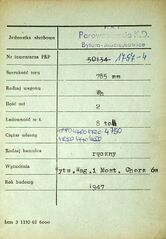 Jednostka służbowa
Parowozownia K.D.
Nr inwentarza PKP 50134 1757-4
Szerokość toru 785 mm
Rodzaj wagonu Wh
Ilość osi 2
Ładowność w t. 8 ton
Ciężar własny 4750
Rodzaj hamulca ręczny
Wytwórnia Wytw. Wag. i Most. Chorzów
Rok budowy 1947